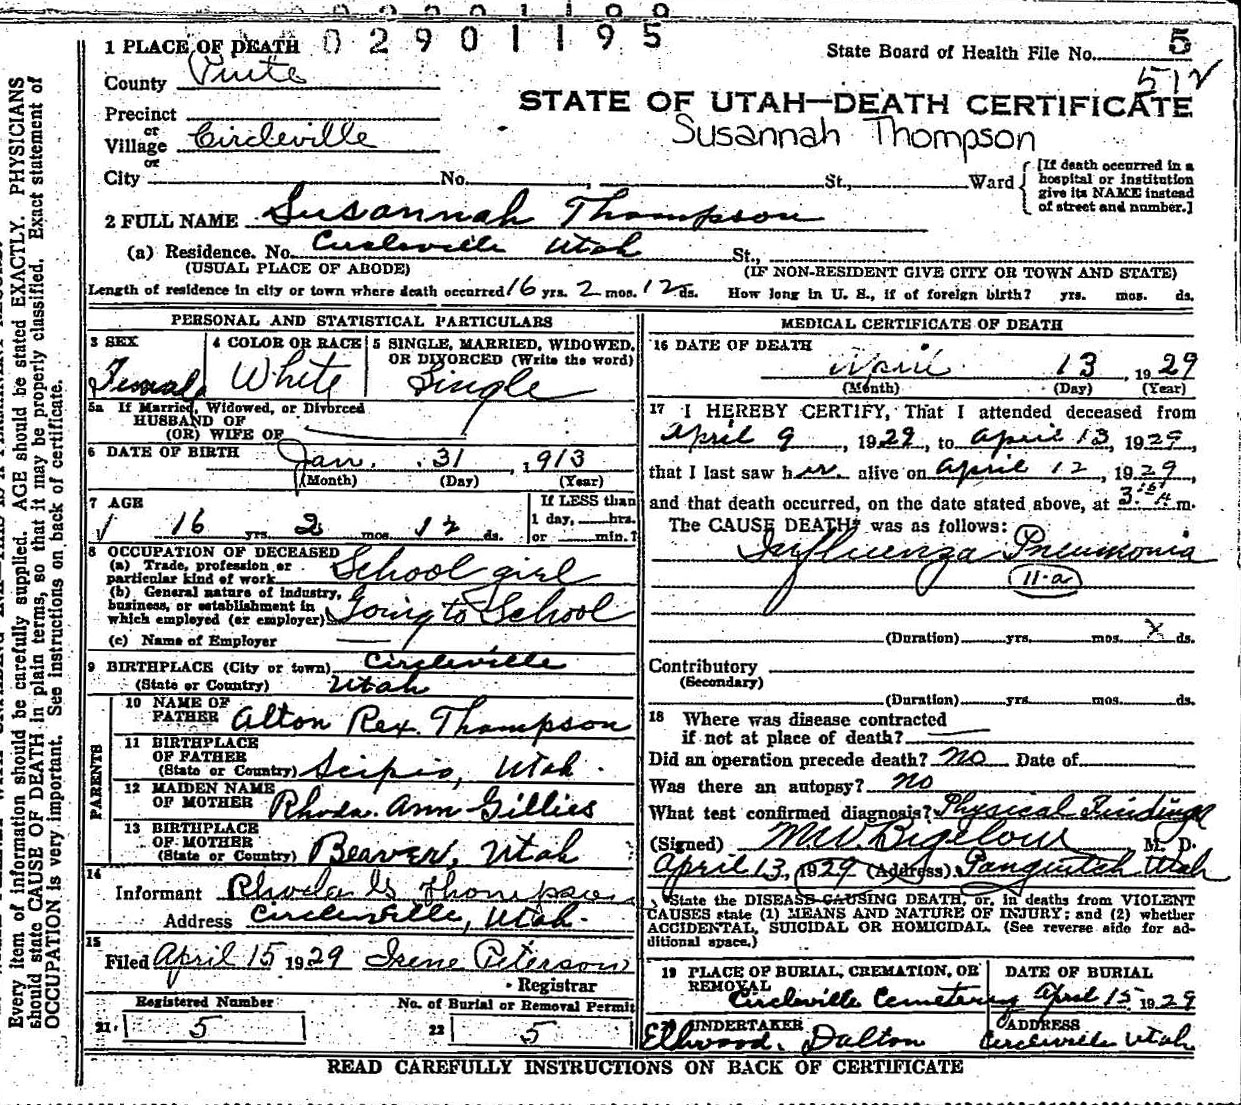 0 2 9 0 1 1 9 5
1 PLACE OF DEATH
State Board of Health File No. 5
512
County Piute
STATE OF UTAH—DEATH CERTIFICATE
Precinct
or
Village Circleville
Susannah Thompson
or
City No. , St., Ward
[If death occurred in a
hospital or institution
give its NAME instead
of street and number.]
2 FULL NAME Susannah Thompson
(a) Residence. No. Circleville Utah St.,
(USUAL PLACE OF ABODE) (IF NON-RESIDENT GIVE CITY OR TOWN AND STATE)
Length of residence in city or town where death occurred 16 yrs. 2 mos. 12 ds. How long in U. S., if of foreign birth? yrs. mos. ds.
PERSONAL AND STATISTICAL PARTICULARS
3 SEX
Female
4 COLOR OR RACE
White
5 SINGLE, MARRIED, WIDOWED,
OR DIVORCED (Write the word)
Single
5a If Married, Widowed, or Divorced
HUSBAND OF
(OR) WIFE OF
6 DATE OF BIRTH Jan. 31, 1913
(Month) (Day) (Year)
7 AGE
16 yrs. 2 mos. 12 ds.
If LESS than
1 day, hrs.
or min.?
8 OCCUPATION OF DECEASED
(a) Trade, profession or
particular kind of work School girl
(b) General nature of industry,
business, or establishment in
which employed (or employer) Going to School
(c) Name of Employer
9 BIRTHPLACE (City or town) Circleville
(State or Country) Utah
PARENTS
10 NAME OF
FATHER Alton Rex Thompson
11 BIRTHPLACE
OF FATHER
(State or Country) Scipio, Utah.
12 MAIDEN NAME
OF MOTHER Rhoda Ann Gillies
13 BIRTHPLACE
OF MOTHER
(State or Country) Beaver, Utah
14
Informant Rhoda G Thompson
Address Circleville, Utah.
15
Filed April 15 1929 Irene Peterson
Registrar
Registered Number
21. 5
No. of Burial or Removal Permit
22 5
MEDICAL CERTIFICATE OF DEATH
16 DATE OF DEATH
April 13 1929
(Month) (Day) (Year)
17 I HEREBY CERTIFY, That I attended deceased from
April 9, 1929, to April 13, 1929,
that I last saw her alive on April 12, 1929,
and that death occurred, on the date stated above, at 3:15 A m.
The CAUSE DEATH was as follows:
Influenza Pneumonia
11-a
(Duration) yrs. mos. X ds.
Contributory
(Secondary)
(Duration) yrs. mos. ds.
18 Where was disease contracted
if not at place of death?
Did an operation precede death? No Date of
Was there an autopsy? no
What test confirmed diagnosis? Physical Findings
(Signed) M. W. Bigelow M. D.
April 13, 1929 (Address) Panguitch Utah
State the DISEASE CAUSING DEATH, or, in deaths from VIOLENT
CAUSES state (1) MEANS AND NATURE OF INJURY; and (2) whether
ACCIDENTAL, SUICIDAL OR HOMICIDAL. (See reverse side for ad-
ditional space.)
19 PLACE OF BURIAL, CREMATION, OR
REMOVAL
Circleville Cemetery
DATE OF BURIAL
April 15 1929
UNDERTAKER
Ellwood Dalton
ADDRESS
Circleville Utah
READ CAREFULLY INSTRUCTIONS ON BACK OF CERTIFICATE
Every item of information should be carefully supplied. AGE should be stated EXACTLY. PHYSICIANS
should state CAUSE OF DEATH in plain terms, so that it may be properly classified. Exact statement of
OCCUPATION is very important. See instructions on back of certificate.